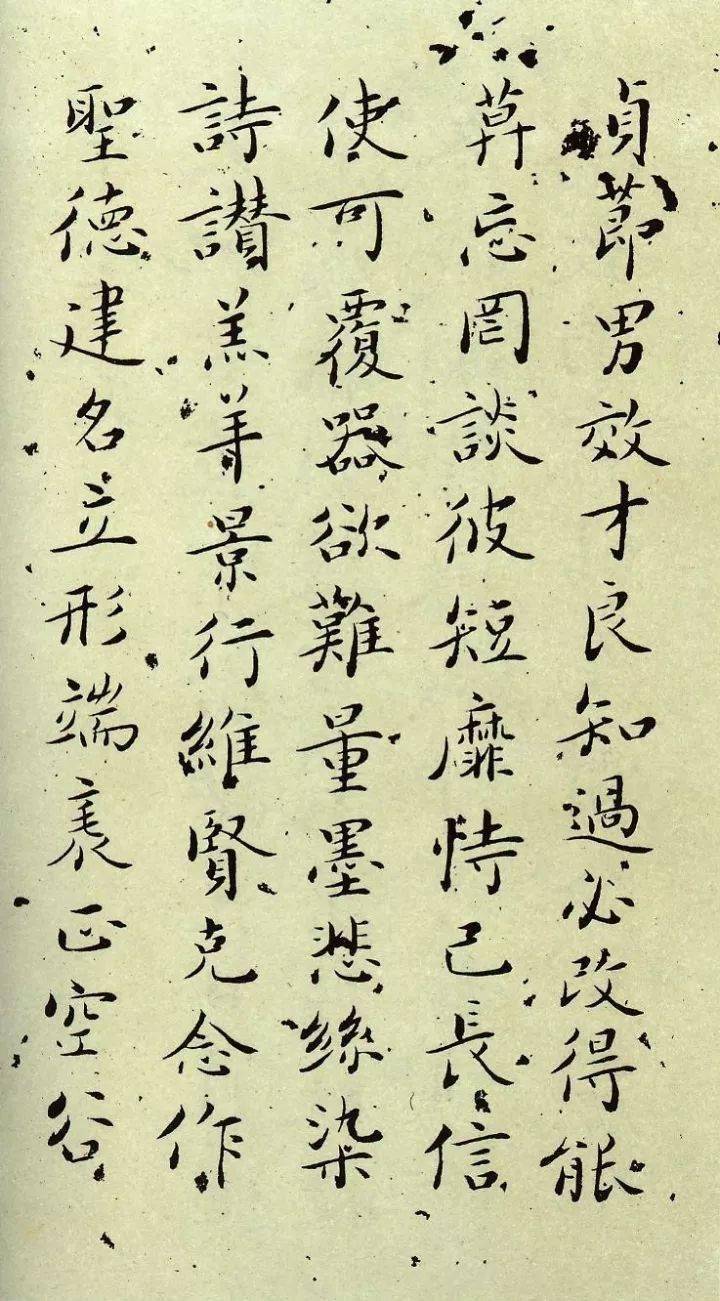 貞節男效才良知過必改得能
莫忘罔談彼短靡恃己長信
使可覆器欲難量墨悲絲染
詩讚羔羊景行維賢克念作
聖德建名立形端表正空谷